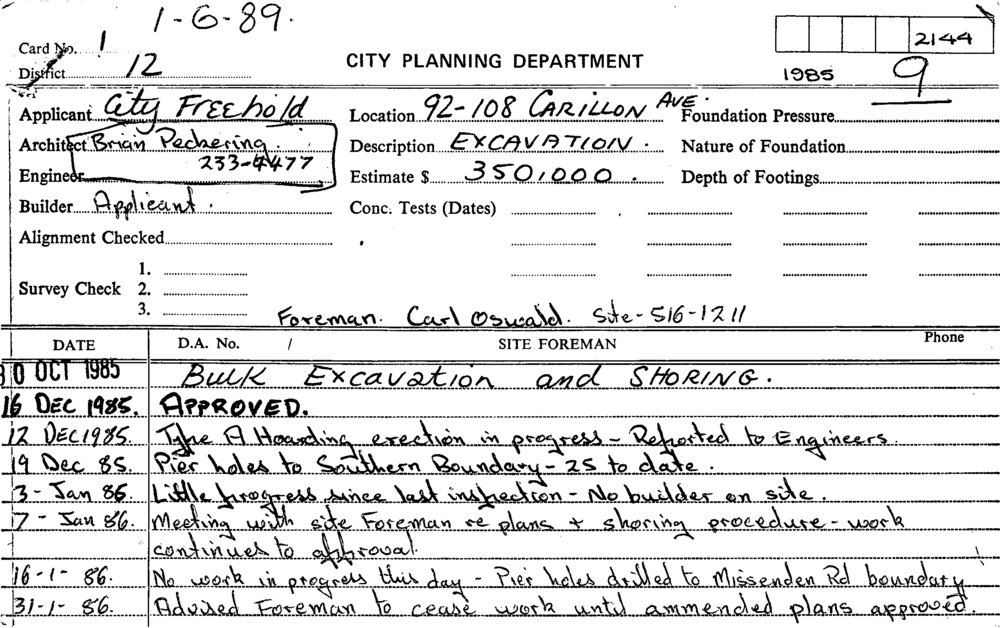 1-6-89.
Card No. 1
2144
District 12
CITY PLANNING DEPARTMENT
1985 9
Applicant City Freehold
Location 92-108 CARILLON AVE.
Foundation Pressure
Architect Brian Peckering.
Description EXCAVATION.
Nature of Foundation
233-4477
Engineer
Estimate $ 350,000.
Depth of Footings
Builder Applicant.
Conc. Tests (Dates)
Alignment Checked
1.
Survey Check 2.
3.
Foreman. Carl Oswald. Site-516-1211
DATE D.A. No. / SITE FOREMAN Phone
30 OCT 1985 Bulk Excavation and SHORING.
16 DEC 1985. APPROVED.
12 DEC 1985. Type A Hoarding erection in progress - Reported to Engineers.
19 Dec 85. Pier holes to Southern Boundary - 25 to date.
3-Jan 86. Little progress since last inspection - No builder on site.
7-Jan 86. Meeting with site Foreman re plans + shoring procedure - work
continues to approval.
16-1-86. No work in progress this day - Pier holes drilled to Missenden Rd boundary
31-1-86. Advised Foreman to cease work until ammended plans approved.